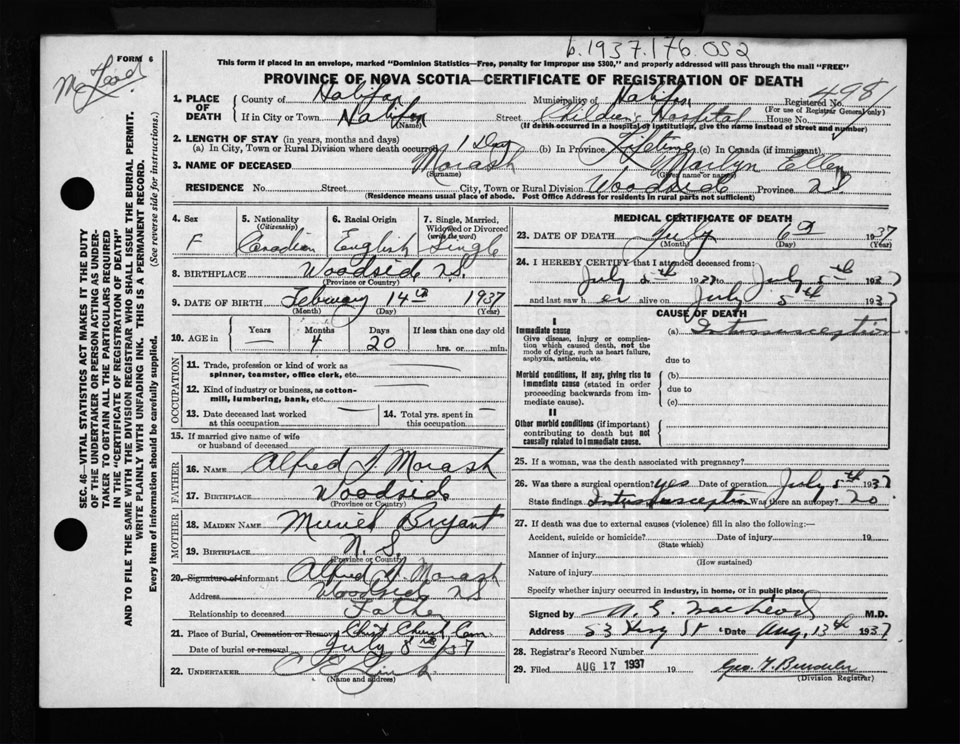 b.1937.176.052
FORM 6
McLeod
This form if placed in an envelope, marked "Dominion Statistics—Free, penalty for improper use $300," and properly addressed will pass through the mail "FREE"
PROVINCE OF NOVA SCOTIA—CERTIFICATE OF REGISTRATION OF DEATH
SEC. 46—VITAL STATISTICS ACT MAKES IT THE DUTY
OF THE UNDERTAKER OR PERSON ACTING AS UNDER-
TAKER TO OBTAIN ALL THE PARTICULARS REQUIRED
IN THE "CERTIFICATE OF REGISTRATION OF DEATH"
AND TO FILE THE SAME WITH THE DIVISION REGISTRAR WHO SHALL ISSUE THE BURIAL PERMIT.
WRITE PLAINLY WITH UNFADING INK. THIS IS A PERMANENT RECORD.
Every item of information should be carefully supplied. (See reverse side for instructions.)
1. PLACE OF DEATH County of Halifax Municipality of Halifax Registered No. 4981
(For use of Registrar General only)
If in City or Town Halifax (Name) Street Children's Hospital House No.
(If death occurred in a hospital or institution, give the name instead of street and number)
2. LENGTH OF STAY (in years, months and days)
(a) In City, Town or Rural Division where death occurred 1 Day (b) In Province Lifetime (c) In Canada (if immigrant)
3. NAME OF DECEASED Morash Marilyn Ellen
(Surname) (Given name or names)
RESIDENCE No. Street City, Town or Rural Division Woodside Province NS
(Residence means usual place of abode. Post Office Address for residents in rural parts not sufficient)
4. Sex F
5. Nationality (Citizenship) Canadian
6. Racial Origin English
7. Single, Married, Widowed or Divorced (write the word) Single
8. BIRTHPLACE Woodside N.S.
(Province or Country)
9. DATE OF BIRTH February 14th 1937
(Month) (Day) (Year)
10. AGE in Years — Months 4 Days 20 If less than one day old hrs. or min.
OCCUPATION
11. Trade, profession or kind of work as spinner, teamster, office clerk, etc.
12. Kind of industry or business, as cotton-mill, lumbering, bank, etc.
13. Date deceased last worked at this occupation —
14. Total yrs. spent in this occupation —
15. If married give name of wife or husband of deceased
FATHER
16. NAME Alfred J. Morash
17. BIRTHPLACE Woodside
MOTHER
18. MAIDEN NAME Muriel Bryant
19. BIRTHPLACE N.S.
(Province or Country)
20. Signature of informant Alfred J. Morash
Address Woodside NS
Relationship to deceased Father
21. Place of Burial, Cremation or Removal Christ Church Cem
Date of burial or removal July 8th '37
22. UNDERTAKER
(Name and address)
MEDICAL CERTIFICATE OF DEATH
23. DATE OF DEATH July 6th 1937
(Month) (Day) (Year)
24. I HEREBY CERTIFY that I attended deceased from:
July 5th 1937 to July 5th 1937
and last saw her alive on July 5th 1937
CAUSE OF DEATH
I
Immediate cause (a) Intussusception
Give disease, injury or complica-
tion which caused death, not the
mode of dying, such as heart failure,
asphyxia, asthenia, etc.
due to
Morbid conditions, if any, giving rise to
immediate cause (stated in order
proceeding backwards from im-
mediate cause).
(b)
due to
(c)
II
Other morbid conditions (if important)
contributing to death but not
causally related to immediate cause.
25. If a woman, was the death associated with pregnancy?
26. Was there a surgical operation? yes Date of operation July 5th 1937
State findings Intussusception Was there an autopsy? no
27. If death was due to external causes (violence) fill in also the following:—
Accident, suicide or homicide? Date of injury 19
(State which)
Manner of injury
(How sustained)
Nature of injury
Specify whether injury occurred in industry, in home, or in public place
Signed by MacLeod M.D.
Address 53 St Date Aug. 13th 1937
28. Registrar's Record Number
29. Filed AUG 17 1937 19
(Division Registrar)